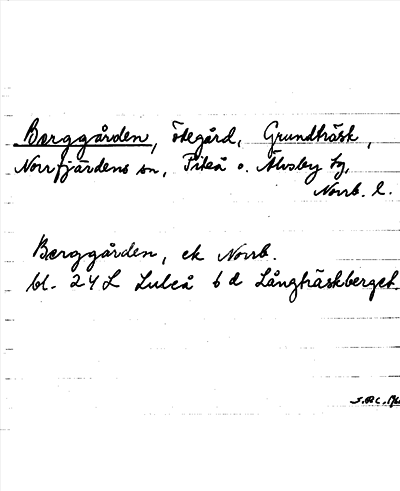 Berggården, ödegård, Grundträsk,
Norrfjärdens sn, Piteå o. Älvsby tg,
Norrb. l.
Berggården, ek Norrb.
bl. 24 L Luleå 6 d Långträskberget